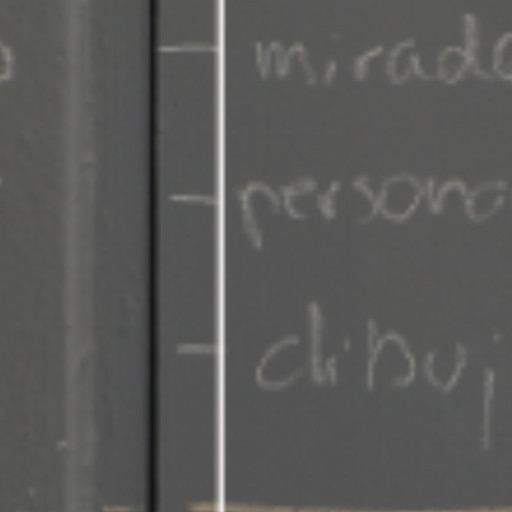 mirado
persona
dibuj